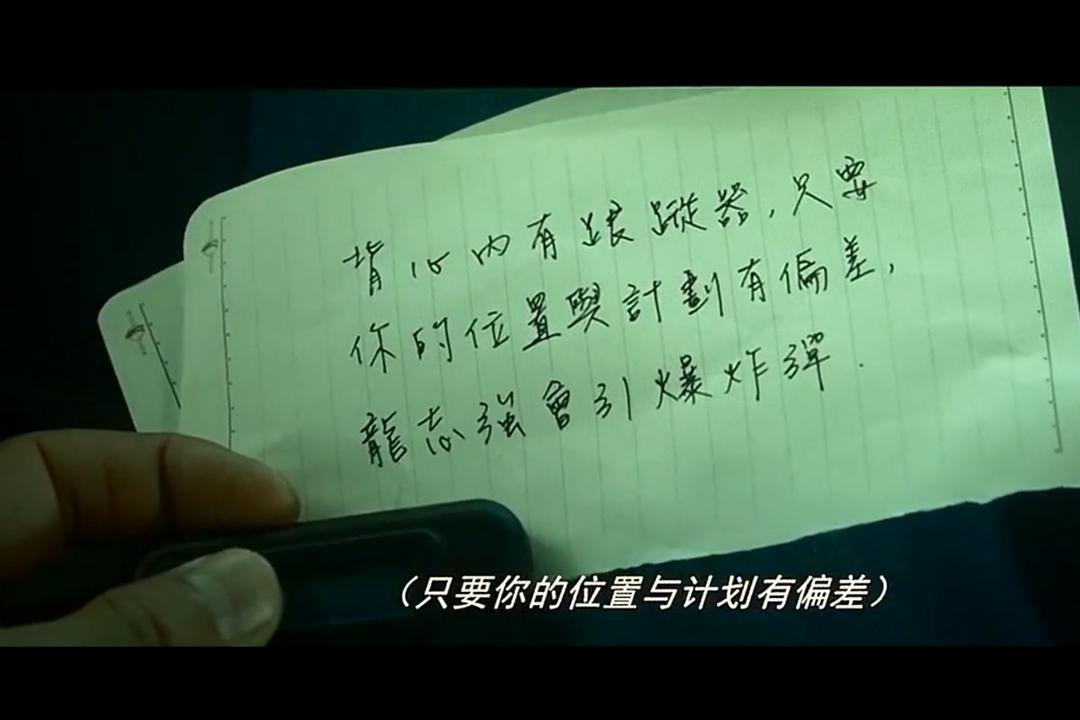 背心内有跟蹤器,只要
你的位置與計劃有偏差,
龍志強會引爆炸彈.
（只要你的位置与计划有偏差）